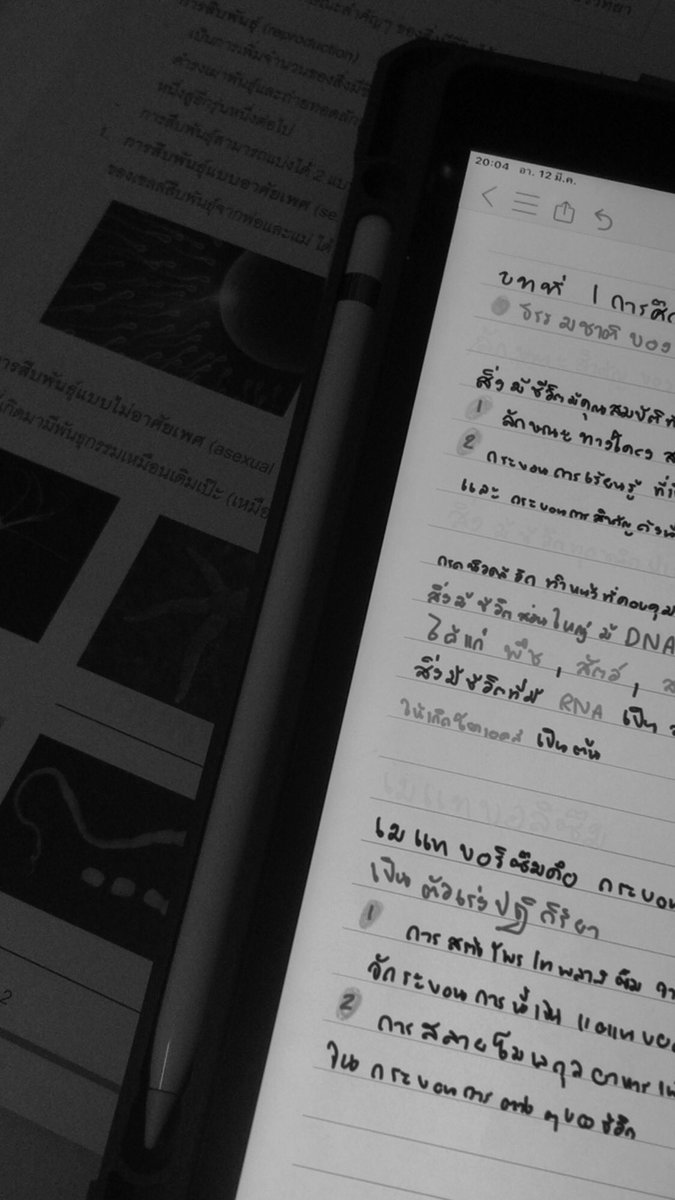 การสืบพันธุ์ (reproduction)
เป็นการเพิ่มจำนวนของสิ่งมีชีวิต
ดำรงเผ่าพันธุ์และถ่ายทอดลักษณะ
หนึ่งสู่อีกรุ่นหนึ่งต่อไป
การสืบพันธุ์สามารถแบ่งได้ 2 แบบ
1. การสืบพันธุ์แบบอาศัยเพศ (se
ของเซลล์สืบพันธุ์จากพ่อและแม่ ได้
การสืบพันธุ์แบบไม่อาศัยเพศ (asexual
เกิดมามีพันธุกรรมเหมือนเดิมเป๊ะ (เหมือ
2
20:04 อา. 12 มี.ค.
บทที่ 1 การศึก
ธรรมชาติของ
สิ่งมีชีวิตมีคุณสมบัติ
1 ลักษณะทางโครงส
2 กระบวนการเรียนรู้ ที่
และ กระบวนการสำคัญ
กรดนิวคลีอิก ทำหน้าที่ควบคุม
สิ่งมีชีวิตส่วนใหญ่ มี DNA
ได้แก่ พืช , สัตว์ ,
สิ่งมีชีวิตที่มี RNA เป็น
ให้เกิดโรคเอดส์ เป็นต้น
เมแทบอลิซึม
เมแทบอริซึมคือ กระบวน
เป็น ตัวเร่งปฏิกิริยา
1 การสร้างโพรโทพลาสซึม จา
จักระบวนการนี้เป็น แอแทบอ
2 การสลายโมเลกุลอาหาร
ใน กระบวนการต่างๆของชีวิต